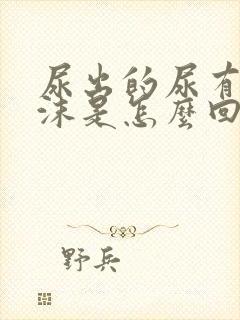 尿出的尿有
沫是怎麼回
野兵